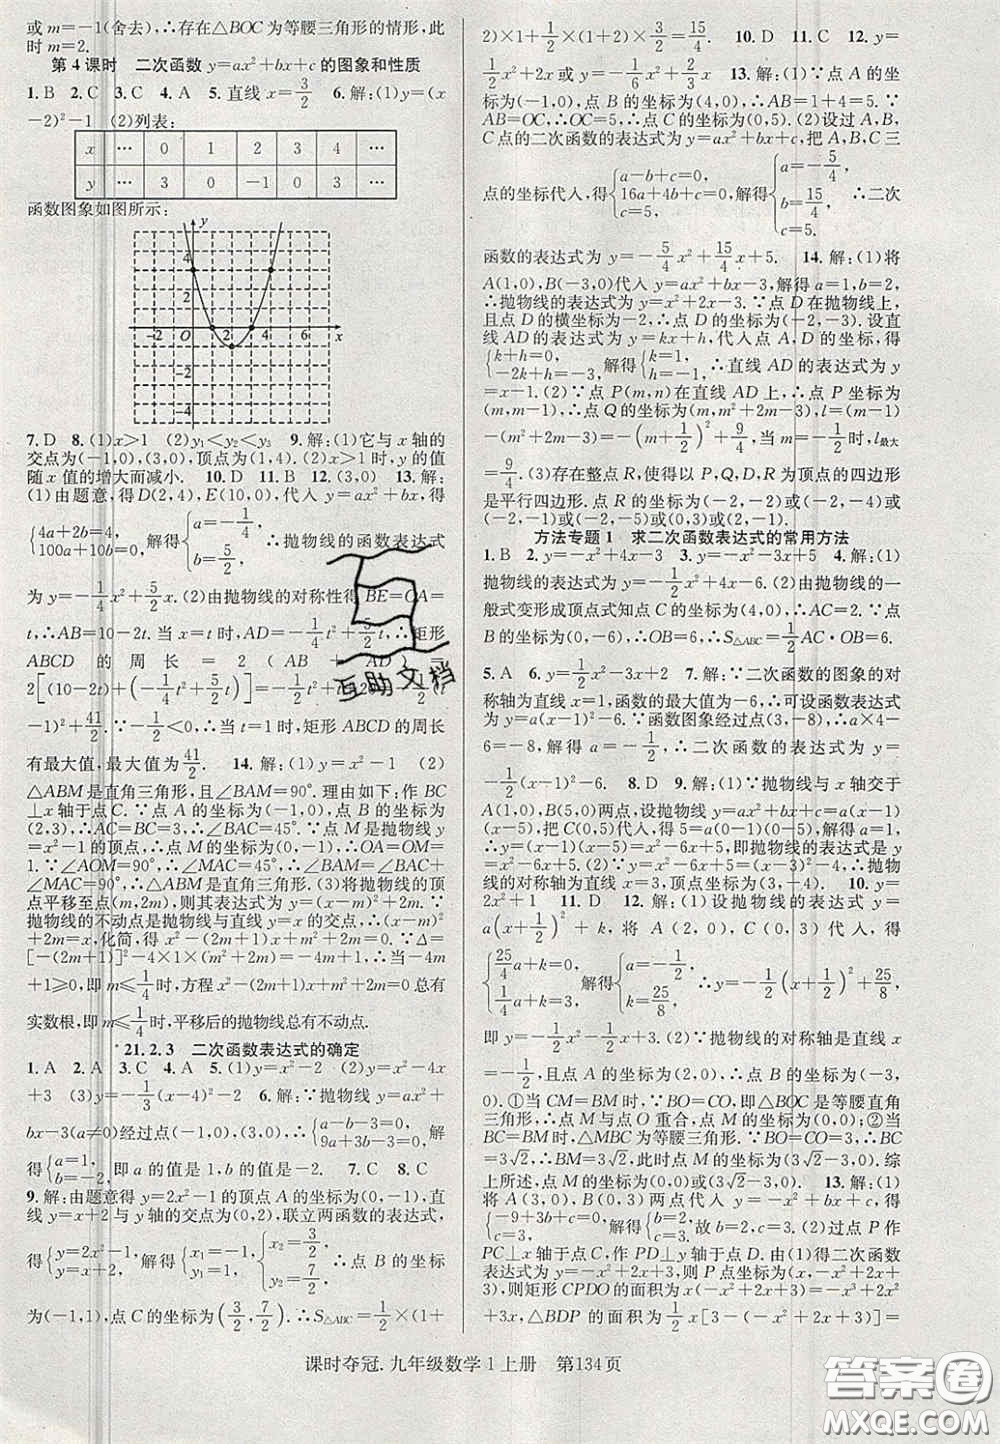 或m=-1(舍去),∴存在△BOC为等腰三角形的情形,此
时m=2.
第4课时　二次函数y=ax²+bx+c的图象和性质
1.B 2.C 3.C 4.A 5.直线x=3/2 6.解:(1)y=(x
-2)²-1 (2)列表:
x … 0 1 2 3 4 …
y … 3 0 -1 0 3 …
函数图象如图所示:
y
4
2
-2 O 2 4 6 x
-2
-4
7.D 8.(1)x>1 (2)y₁<y₂<y₃ 9.解:(1)它与x轴的
交点为(-1,0),(3,0),顶点为(1,4). (2)x>1时,y的值
随x值的增大而减小. 10.D 11.B 12.(3,0) 13.解:
(1)由题意,得D(2,4),E(10,0),代入y=ax²+bx,得
{4a+2b=4, 100a+10b=0, 解得{a=-1/4, b=5/2, ∴抛物线的函数表达式
为y=-1/4x²+5/2x. (2)由抛物线的对称性得BE=OA=
t,∴AB=10-2t.当x=t时,AD=-1/4t²+5/2t,∴矩形
ABCD的周长=2(AB+AD)=
2[(10-2t)+(-1/4t²+5/2t)]=-1/2t²+t+20=-1/2(t
-1)²+41/2.∵-1/2<0,∴当t=1时,矩形ABCD的周长
有最大值,最大值为41/2. 14.解:(1)y=x²-1 (2)
△ABM是直角三角形,且∠BAM=90°.理由如下:作BC
⊥x轴于点C.∵点A的坐标为(-1,0),点B的坐标为
(2,3),∴AC=BC=3,∴∠BAC=45°.∵点M是抛物线y
=x²-1的顶点,∴点M的坐标为(0,-1),∴OA=OM=
1.∵∠AOM=90°,∴∠MAC=45°,∴∠BAM=∠BAC
+∠MAC=90°,∴△ABM是直角三角形. (3)将抛物线的顶
点平移至点(m,2m),则其表达式为y=(x-m)²+2m.∵
抛物线的不动点是抛物线与直线y=x的交点,∴(x-m)²
+2m=x,化简,得x²-(2m+1)x+m²+2m=0.∵Δ=
[-(2m+1)]²-4×1×(m²+2m)=-4m+1,当-4m+
1≥0,即m≤1/4时,方程x²-(2m+1)x+m²+2m=0总有
实数根,即m≤1/4时,平移后的抛物线总有不动点.
21.2.3　二次函数表达式的确定
1.A 2.A 3.C 4.A 5.(1)y=x²-2 (2)y=x²-4x
+3 (3)y=-1/3(x-4)² 6.解:∵抛物线y=ax²+
bx-3(a≠0)经过点(-1,0),(3,0),∴{a-b-3=0, 9a+3b-3=0, 解
得{a=1, b=-2, 即a的值是1,b的值是-2. 7.C 8.C
9.解:由题意得y=2x²-1的顶点A的坐标为(0,-1),直
线y=x+2与y轴的交点为(0,2),联立两函数的表达式,
得{y=2x²-1, y=x+2, 解得{x₁=-1, y₁=1, {x₂=3/2, y₂=7/2, ∴点B的坐标
为(-1,1),点C的坐标为(3/2,7/2),∴S△ABC=1/2×(1+
2)×1+1/2×(1+2)×3/2=15/4. 10.D 11.C 12.y=
1/2x²-1/2x+2或y=-1/2x²+1/2x+2 13.解:(1)∵点A的坐
标为(-1,0),点B的坐标为(4,0),∴AB=1+4=5.∵
AB=OC,∴OC=5,∴点C的坐标为(0,5). (2)设过A,B,
C点的二次函数的表达式为y=ax²+bx+c,把A,B,C三
点的坐标代入,得{a-b+c=0, 16a+4b+c=0, c=5, 解得{a=-5/4, b=15/4, c=5. ∴二次
函数的表达式为y=-5/4x²+15/4x+5. 14.解:(1)将
A(1,0),B(-3,0)代入y=ax²+bx-3,解得a=1,b=2,
∴抛物线的表达式为y=x²+2x-3.∵点D在抛物线上,
且点D的横坐标为-2,∴点D的坐标为(-2,-3).设直
线AD的表达式为y=kx+h,代入点A,D的坐标,得
{k+h=0, -2k+h=-3, 解得{k=1, h=-1, ∴直线AD的表达式为y=
x-1. (2)∵点P(m,n)在直线AD上,∴点P坐标为
(m,m-1),∴点Q的坐标为(m,m²+2m-3),l=(m-1)
-(m²+2m-3)=-(m+1/2)²+9/4,∴当m=-1/2时,l最大
=9/4. (3)存在整点R,使得以P,Q,D,R为顶点的四边形
是平行四边形.点R的坐标为(-2,-2)或(-2,-4)或
(-2,-1)或(-2,-5)或(0,-3)或(-2,1).
方法专题1　求二次函数表达式的常用方法
1.B 2.y=-x²+4x-4 3.y=-x²-x+5 4.解:(1)
抛物线的表达式为y=1/2x²-4x-6. (2)由抛物线的一
般式变形成顶点式知点C的坐标为(4,0),∴AC=2.∵点
B的坐标为(0,-6),∴OB=6,∴S△ABC=1/2AC·OB=6.
5.A 6.y=-x²-3x+2 7.解:∵二次函数的图象的对
称轴为直线x=1,函数的最大值为-6,∴可设函数表达式
为y=a(x-1)²-6.∵函数图象经过点(3,-8),∴a×4-
6=-8,解得a=-1/2,∴二次函数的表达式为y=
-1/2(x-1)²-6. 8.D 9.解:(1)∵抛物线与x轴交于
A(1,0),B(5,0)两点,设抛物线y=ax²+bx+c=a(x-1)
(x-5).把C(0,5)代入,得5=a(0-1)(0-5),解得a=1,
∴y=(x-1)(x-5)=x²-6x+5,即抛物线的表达式是y
=x²-6x+5. (2)∵y=x²-6x+5=(x-3)²-4,∴抛物线
的对称轴为直线x=3,顶点坐标为(3,-4). 10.y=
2x²+1 11.D 12.解:(1)设抛物线的表达式为y=
a(x+1/2)²+k,将A(2,0),C(0,3)代入,得
{25/4a+k=0, 1/4a+k=3, 解得{a=-1/2, k=25/8, ∴y=-1/2(x+1/2)²+25/8,
即y=-1/2x²-1/2x+3. (2)∵抛物线的对称轴是直线x=
-1/2,且点A的坐标为(2,0),∴点B的坐标为(-3,
0).①当CM=BM时,∵BO=CO=3,即△BOC是等腰直角
三角形,∴点M与点O重合,点M的坐标为(0,0);②当
BC=BM时,△MBC为等腰三角形.∵BO=CO=3,∴BC=
3√2,∴BM=3√2,∴点M的坐标为(3√2-3,0).综
上所述,点M的坐标为(3√2-3,0)或(0,0). 13.解:(1)
将A(-1,0),B(3,0)两点代入y=-x²+bx+c,得
{-9+3b+c=0, c=3, 解得{b=2, c=3, 故b=2,c=3. (2)过点P作
PC⊥x轴于点C,作PD⊥y轴于点D.由(1)得二次函数
表达式为y=-x²+2x+3,则P点坐标为(x,-x²+2x+
3),则矩形CPDO的面积为x(-x²+2x+3)=-x³+2x²+
3x,△BDP的面积为1/2x[3-(-x²+2x+3)]=
课时夺冠.九年级数学1上册　第134页
互助文档
答案圈
MXQE.COM